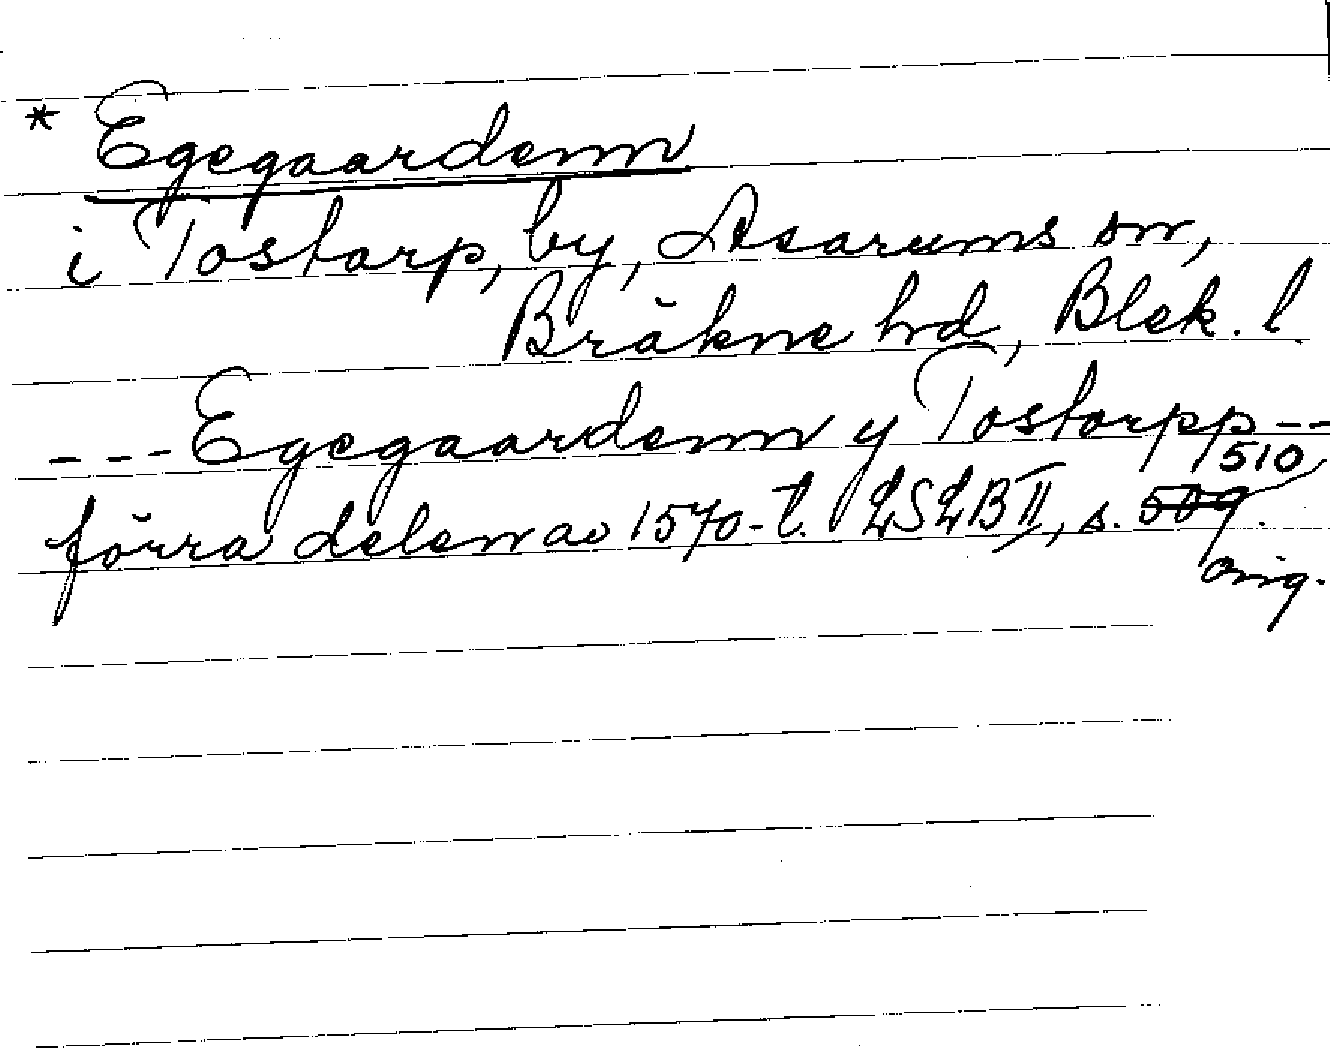 * Egegaardenn
i Tostarp, by, Asarums sn,
Bräkne hd, Blek. l
--- Egegaardenn y Tostorpp --
förra delen av 1570-t. LSLB II, s. 509. 510
orig.